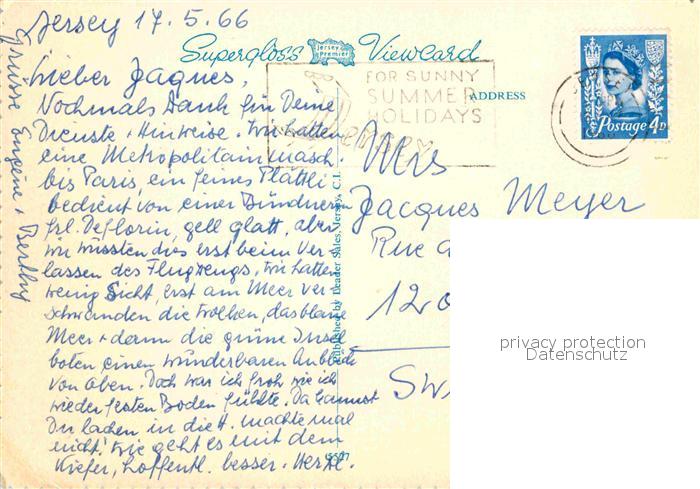 Jersey 17.5.66
Supergloss Jersey Premier Viewcard
Lieber Jaques,
Nochmals Dank für Deine
Dienste + Hinweise. Wir hatten
eine Metropolitainmasch.
bis Paris, ein feines Plättli
bedient von einer Bündnerin
Frl. Deflorin, gell glatt, aber
wir wussten dies erst beim Ver
lassen des Flugzeugs, wir hatten
wenig Sicht, erst am Meer ver
schwanden die Wolken, das blaue
Meer + dann die grüne Insel
boten einen wunderbaren Anblick
von oben. Doch war ich froh wie ich
wieder festen Boden fühlte. Da kannst
Du lachen in die H. machte mal
nicht! Wie geht es mit dem
Kiefer, hoffentl. besser. Herzl.
Grüsse Eugène + Berthy
FOR SUNNY
SUMMER
HOLIDAYS
Jersey
ADDRESS
Postage 4D
Mrs
Jacques Meyer
Rue
120
SW
Published by Leader Sales, Jersey, C.I.
privacy protection
Datenschutz